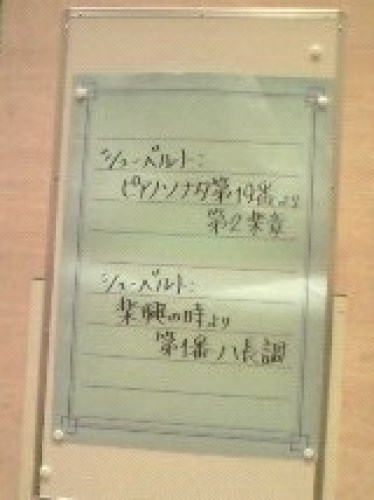 シューベルト:
ピアノ・ソナタ第19番より
第2楽章
シューベルト:
楽興の時より
第1番 ハ長調